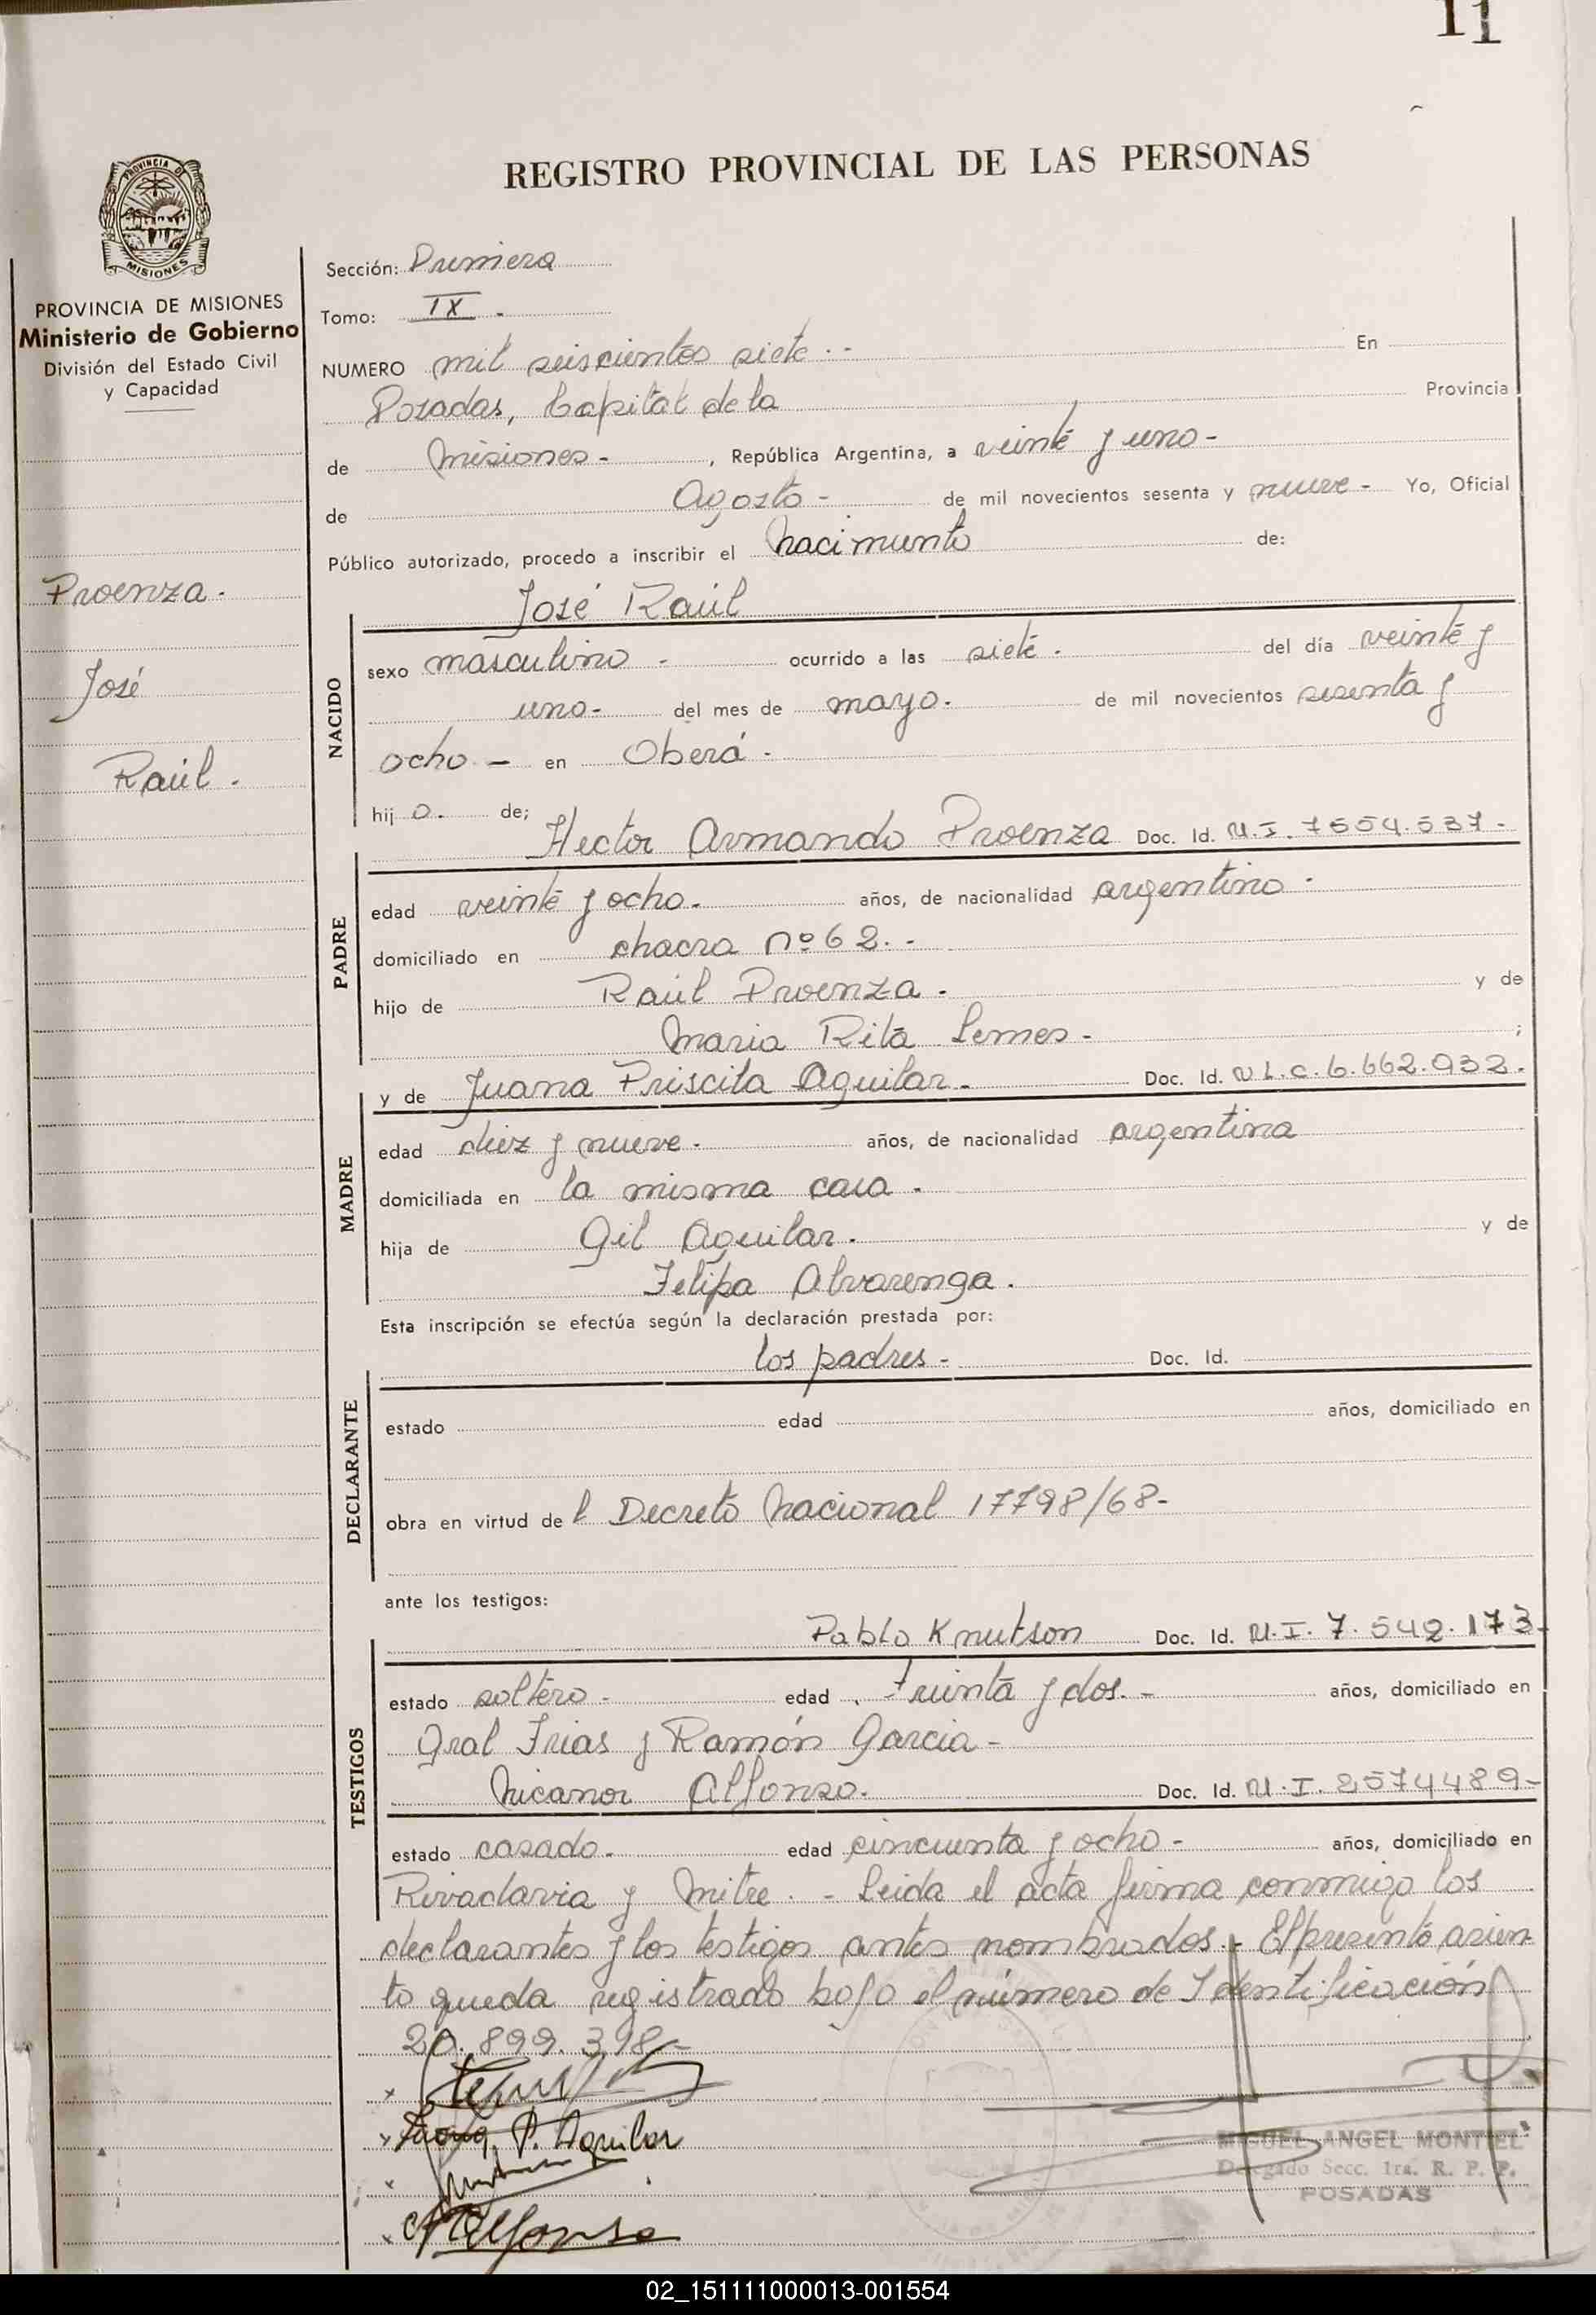 11
REGISTRO PROVINCIAL DE LAS PERSONAS
PROVINCIA DE
MISIONES
PROVINCIA DE MISIONES
Ministerio de Gobierno
División del Estado Civil
y Capacidad
Proenza.
José
Raúl.
Sección: Primera
Tomo: IX -
NUMERO mil seiscientos siete. - En
Posadas, Capital de la Provincia
de Misiones - , República Argentina, a veinte y uno -
de Agosto - de mil novecientos sesenta y nueve - Yo, Oficial
Público autorizado, procedo a inscribir el nacimiento de:
José Raúl
NACIDO
sexo masculino - ocurrido a las siete. del día veinte y
uno- del mes de mayo. de mil novecientos sesenta y
ocho - en Oberá -
hij o. de;
PADRE
Hector Armando Proenza Doc. Id. M.I. 7554.537-
edad veinte y ocho. años, de nacionalidad argentino -
domiciliado en chacra nº 62. -
hijo de Raúl Proenza. y de
Maria Rita Lemes - ;
MADRE
y de Juana Priscila Aguilar - Doc. Id. N L.C. 6.662.932.
edad diez y nueve - años, de nacionalidad argentina
domiciliada en la misma casa.
hija de Gil Aguilar. y de
Felipa Alvarenga.
Esta inscripción se efectúa según la declaración prestada por:
DECLARANTE
los padres - Doc. Id.
estado edad años, domiciliado en
obra en virtud de l Decreto Nacional 17798/68-
ante los testigos:
TESTIGOS
Pablo Knutson Doc. Id. M.I. 7.542.173.
estado soltero - edad . Treinta y dos. - años, domiciliado en
Gral Frias y Ramón Garcia -
Nicanor Alfonso. Doc. Id. M.I. 2574489-
estado casado. edad cincuenta y ocho - años, domiciliado en
Rivadavia y Mitre. - Leida el acta firma conmigo los
declarantes y los testigos antes nombrados. - El presente asien
to queda registrado bajo el número de Identificación
20.899.398-
Juana. P. Aguilar
Alfonso
MIGUEL ANGEL MONTIEL
Delegado Secc. 1ra. R. P. P.
POSADAS
02_151111000013-001554